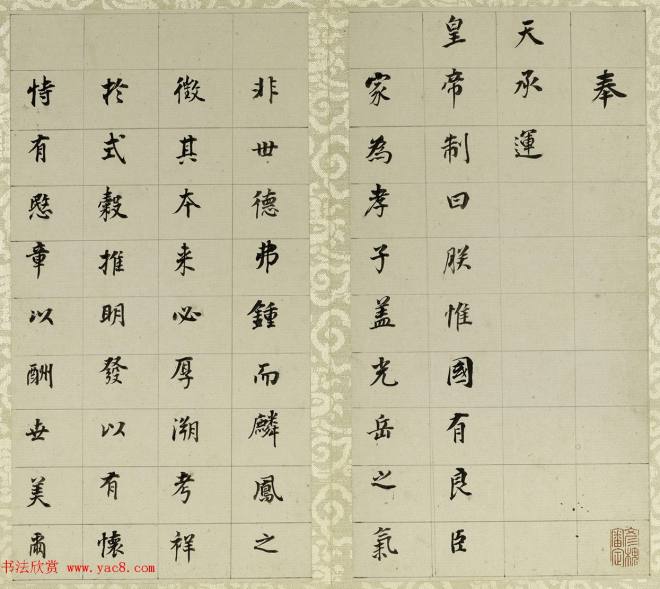 奉
天承運
皇帝制曰朕惟國有良臣
家為孝子蓋光岳之氣
非世德弗鍾而麟鳳之
徵其本来必厚溯考祥
於式穀推明發以有懷
恃有愍章以酬世美爾
书法欣赏 www.yac8.com